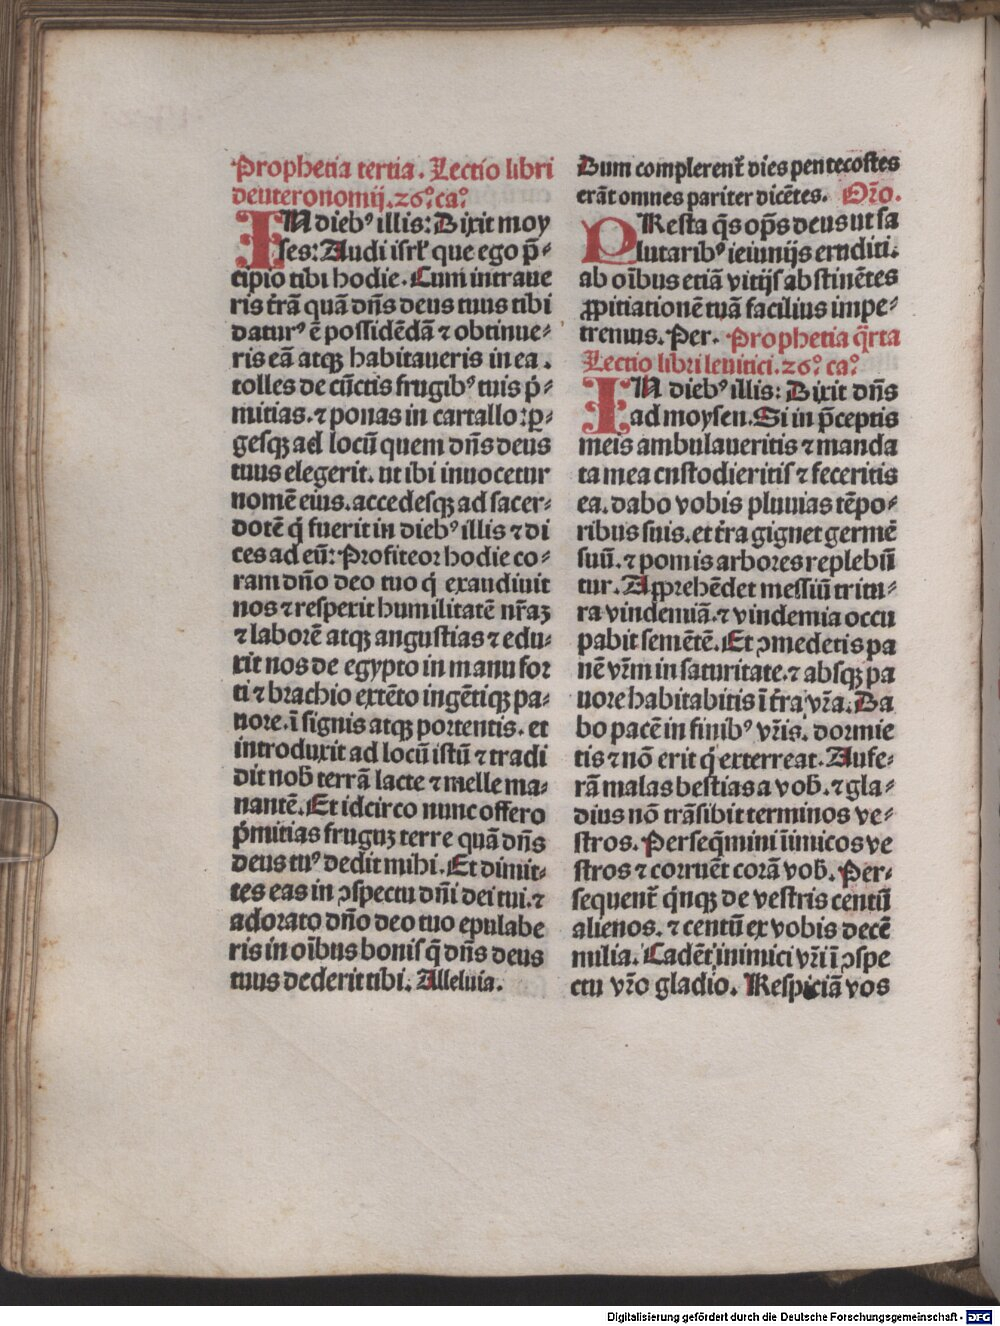 Prophetia tertia. Lectio libri
deuteronomij. 26.° ca.°
IN diebꝰ illis: Dixit moy
ses: Audi isrl̕ que ego p̄-
cipio tibi hodie. Cum intraue
ris t̄rā quā dn̄s deus tuus tibi
daturꝰ ē possidēdā ⁊ obtinue-
ris eā atqꝫ habitaueris in ea.
tolles de cūctis frugibꝰ tuis p̓-
mitias. ⁊ ponas in cartallo: ꝑ-
gesqꝫ ad locū quem dn̄s deus
tuus elegerit. ut ibi inuocetur
nomē eius. accedesqꝫ ad sacer-
dotē q̓ fuerit in diebꝰ illis ⁊ di
ces ad eū: Profiteor hodie co-
ram dn̄o deo tuo q̓ exaudiuit
nos ⁊ respexit humilitatē nr̄aꝫ
⁊ laborē atqꝫ angustias ⁊ edu-
xit nos de egypto in manu for
ti ⁊ brachio extēto ingētiqꝫ pa-
uore. ī signis atqꝫ portentis. et
introduxit ad locū istū ⁊ tradi
dit nob̄ terrā lacte ⁊ melle ma-
nantē. Et idcirco nunc offero
p̓mitias fruguꝫ terre quā dn̄s
deus tuꝰ dedit mihi. Et dimit-
tes eas in ꝯspectu dn̄i dei tui. ⁊
adorato dn̄o deo tuo epulabe
ris in oībus bonis q̄ dn̄s deus
tuus dederit tibi. Alleluia.
Dum complerent̄ dies pentecostes
erāt omnes pariter dicētes. Or̄o.
PResta q̄s op̄s deus ut sa
lutaribꝰ ieiunijs eruditi.
ab oībus etiā vitijs abstinētes
ꝓpitiationē tuā facilius impe-
tremus. Per. Prophetia q̄rta
Lectio libri leuitici. 26.° ca.°
IN diebꝰ illis: Dixit dn̄s
ad moysen. Si in p̄ceptis
meis ambulaueritis ⁊ manda
ta mea custodieritis ⁊ feceritis
ea. dabo vobis pluuias tēpo-
ribus suis. et t̄ra gignet germē
suū. ⁊ pomis arbores replebūt
tur. Apprehēdet messiū tritu-
ra vindemiā. ⁊ vindemia occu
pabit semētē. Et ꝯmedetis pa
nē vr̄m in saturitate. ⁊ absqꝫ pa
uore habitabitis ī t̄ra vr̄a. Da
bo pacē in finibꝰ vr̄is. dormie
tis ⁊ nō erit q̓ exterreat. Aufe-
rā malas bestias a vob̄. ⁊ gla-
dius nō trāsibit terminos ve-
stros. Perseq̄mini īimicos ve
stros ⁊ corruēt corā vob̄. Per-
sequent̄ q̓nqꝫ de vestris centū
alienos. ⁊ centū ex vobis decē
milia. Cadēt inimici vr̄i ī ꝯspe
ctu vr̄o gladio. Respiciā vos
Digitalisierung gefördert durch die Deutsche Forschungsgemeinschaft - DFG